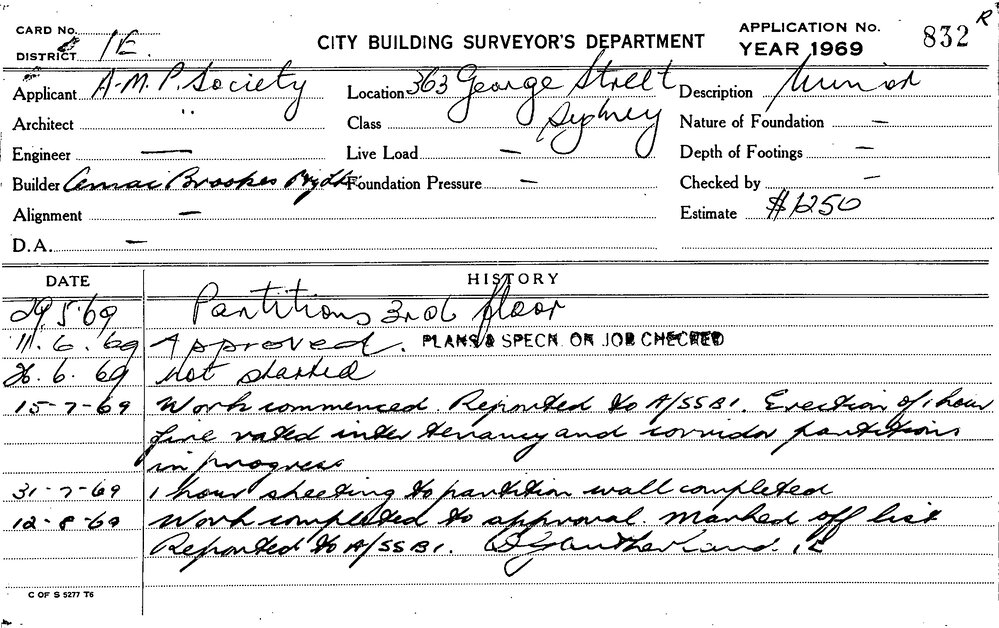 CARD No.
DISTRICT 1E.
CITY BUILDING SURVEYOR'S DEPARTMENT
APPLICATION No.
YEAR 1969
832 R
Applicant A.M.P. Society
Location 363 George Street
Description Minor
Architect "
Class Sydney
Nature of Foundation —
Engineer —
Live Load —
Depth of Footings —
Builder Brookes Pty Ltd
Foundation Pressure —
Checked by —
Alignment —
Estimate $1250
D.A. —
DATE HISTORY
29.5.69 Partitions 3rd floor
11.6.69 Approved. PLANS & SPECN. ON JOB CHECKED
26.6.69 Not started
15-7-69 Work commenced. Reported to A/SSB1. Erection of 1 hour
fire rated inter tenancy and corridor partitions
in progress
31-7-69 1 hour sheeting to partition wall completed
12-8-69 Work completed to approval. Marked off list
Reported to A/SSB1. 1E
C OF S 5277 T6